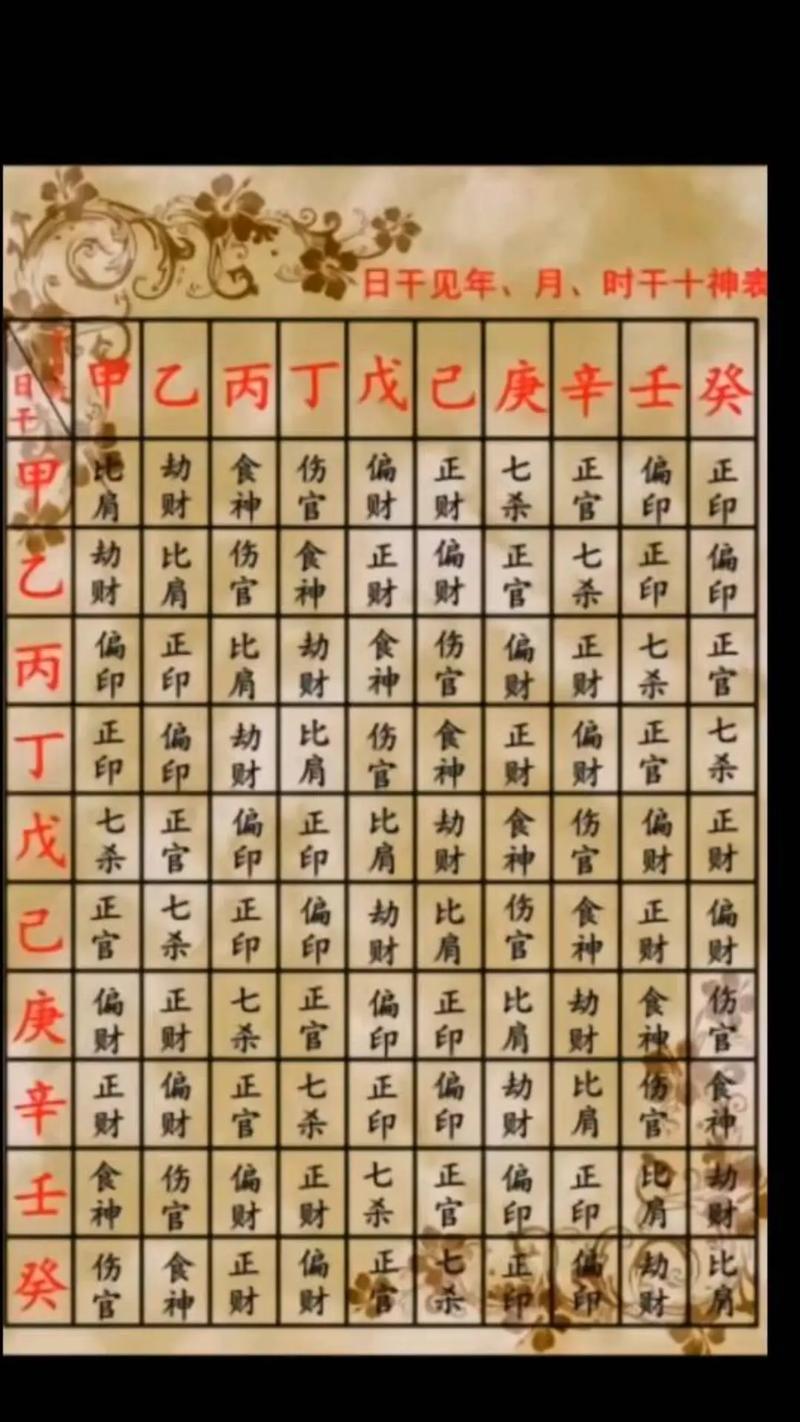 日干见年、月、时干十神表
日干 甲 乙 丙 丁 戊 己 庚 辛 壬 癸
甲 比肩 劫财 食神 伤官 偏财 正财 七杀 正官 偏印 正印
乙 劫财 比肩 伤官 食神 正财 偏财 正官 七杀 正印 偏印
丙 偏印 正印 比肩 劫财 食神 伤官 偏财 正财 七杀 正官
丁 正印 偏印 劫财 比肩 伤官 食神 正财 偏财 正官 七杀
戊 七杀 正官 偏印 正印 比肩 劫财 食神 伤官 偏财 正财
己 正官 七杀 正印 偏印 劫财 比肩 伤官 食神 正财 偏财
庚 偏财 正财 七杀 正官 偏印 正印 比肩 劫财 食神 伤官
辛 正财 偏财 正官 七杀 正印 偏印 劫财 比肩 伤官 食神
壬 食神 伤官 偏财 正财 七杀 正官 偏印 正印 比肩 劫财
癸 伤官 食神 正财 偏财 正官 七杀 正印 偏印 劫财 比肩